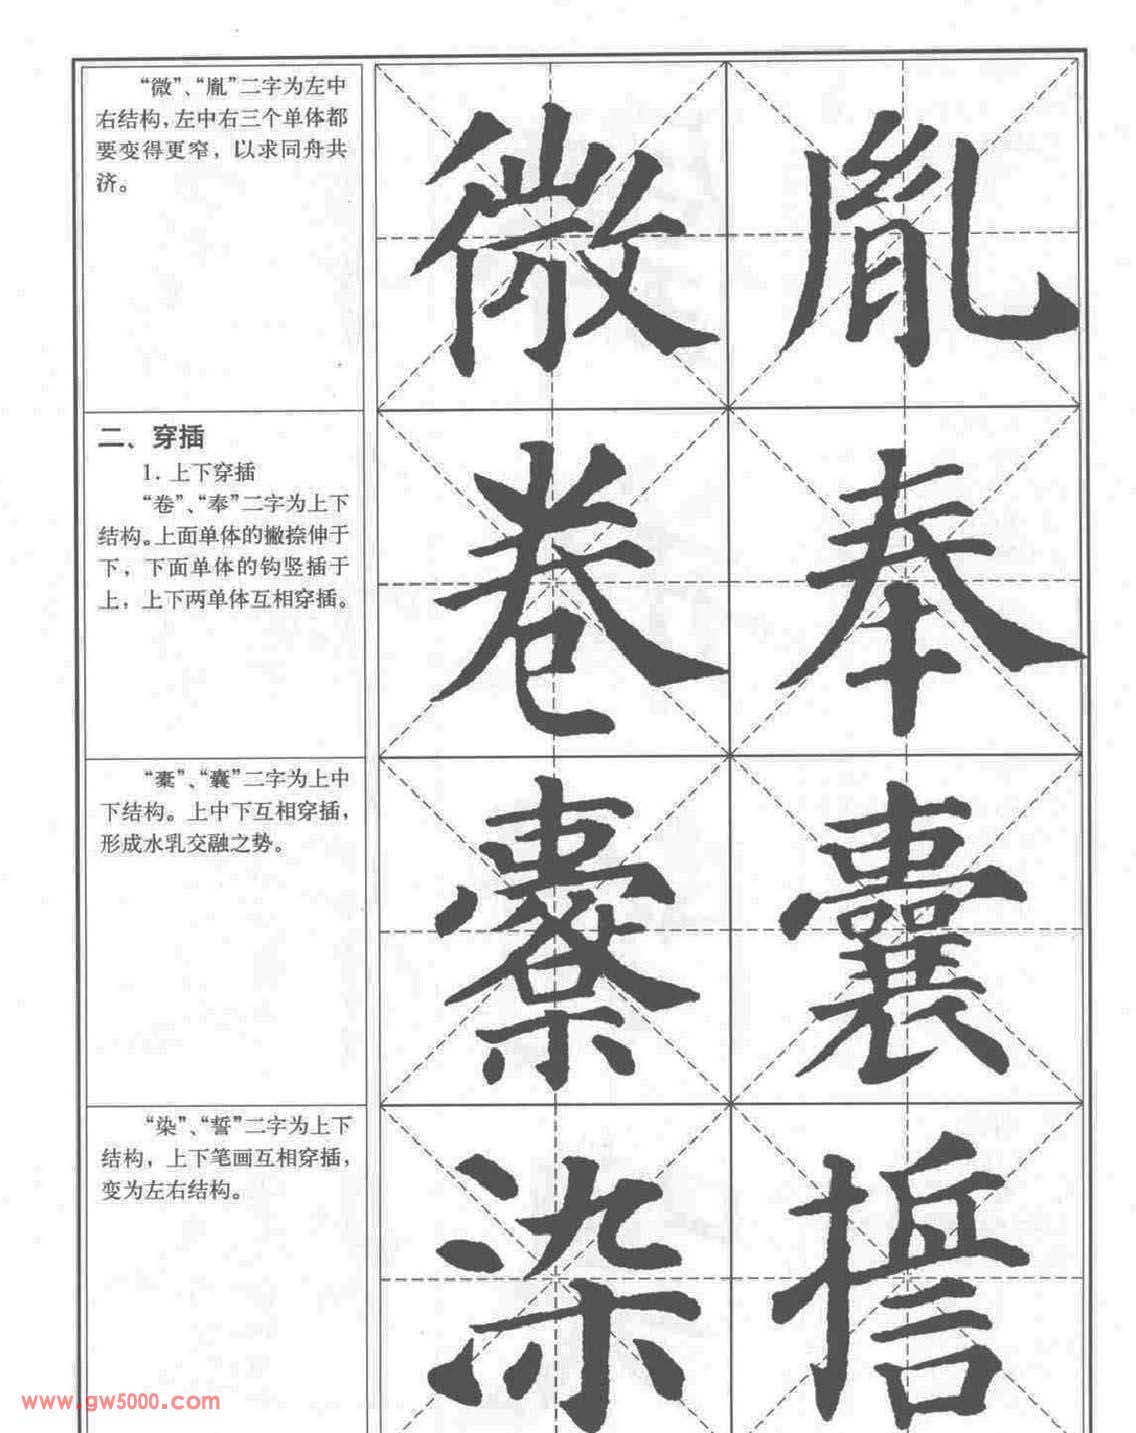 “微”、“胤”二字为左中
右结构，左中右三个单体都
要变得更窄，以求同舟共
济。
微 胤
二、穿插
1. 上下穿插
“卷”、“奉”二字为上下
结构。上面单体的撇捺伸于
下，下面单体的钩竖插于
上，上下两单体互相穿插。
卷 奉
“橐”、“囊”二字为上中
下结构。上中下互相穿插，
形成水乳交融之势。
囊
“染”、“誓”二字为上下
结构，上下笔画互相穿插，
变为左右结构。
染 誓
www.gw5000.com